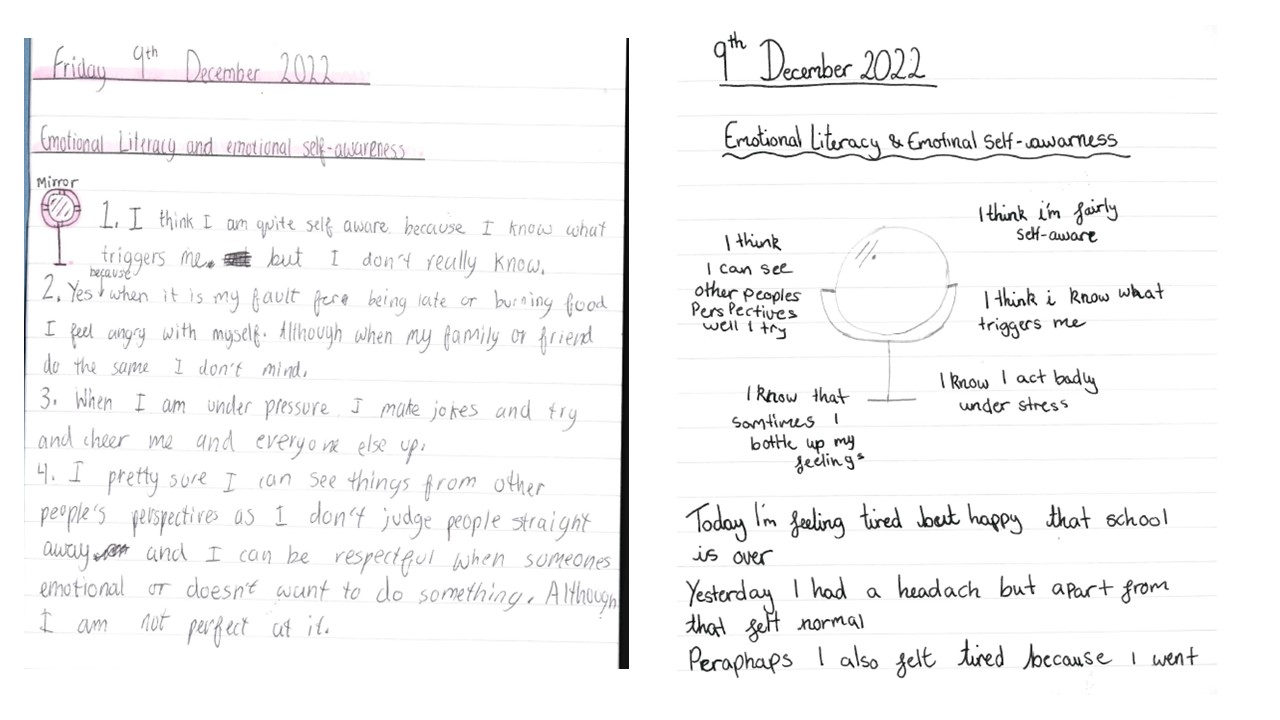 Friday 9th December 2022
Emotional Literacy and emotional self-awareness
Mirror
1. I think I am quite self aware because I know what
triggers me. but I don't really know.
because
2. Yes when it is my fault being late or burning food
I feel angry with myself. Although when my family or friend
do the same I don't mind.
3. When I am under pressure I make jokes and try
and cheer me and everyone else up.
4. I pretty sure I can see things from other
people's perspectives as I don't judge people straight
away and I can be respectful when someones
emotional or doesn't want to do something. Although
I am not perfect at it.
9th December 2022
Emotional Literacy & Emotinal Self-awarness
I think
I can see
other peoples
Perspectives
well I try
I know that
somtimes I
bottle up my
feelings
I think i'm fairly
self-aware
I think i know what
triggers me
I know I act badly
under stress
Today I'm feeling tired but happy that school
is over
Yesterday I had a headach but apart from
that felt normal
Peraphaps I also felt tired because I went